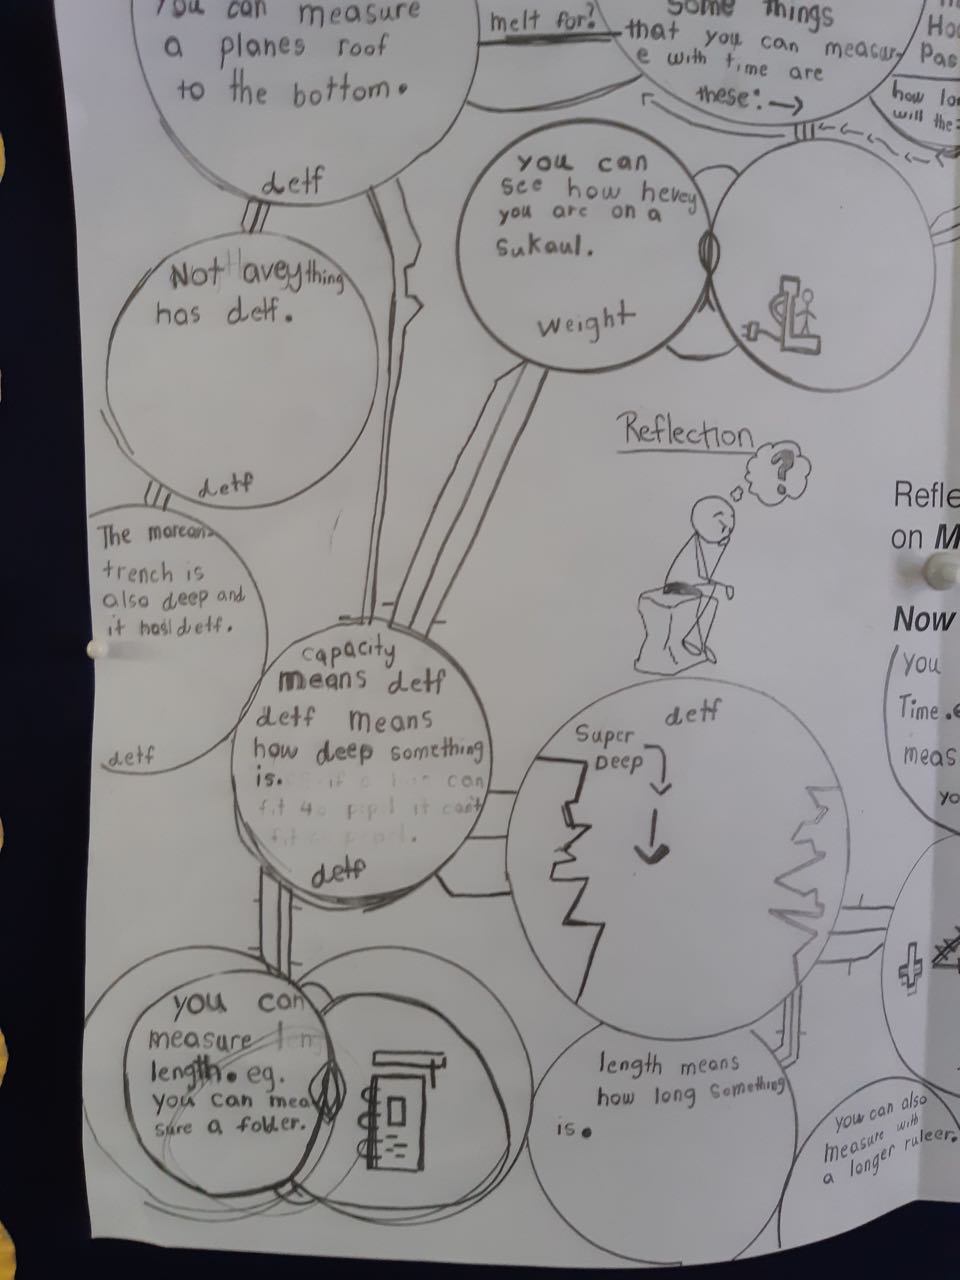 You can measure
a planes roof
to the bottom.
detf
melt for?
Some things
that you can measur-
e with time are
these:
how lo
will the
you can
see how hevey
you are on a
sukaul.
weight
Not aveything
has detf.
detf
Reflection
?
Refle
on M
Now
The marean-
trench is
also deep and
it has detf.
detf
capacity
means detf
detf means
how deep something
is.
can
fit 40 it can't
fit
detf
detf
Super
Deep
you
Time.
meas
yo
you can
measure len
length. eg.
you can mea
sure a folder.
length means
how long something
is.
you can also
measure with
a longer ruleer.